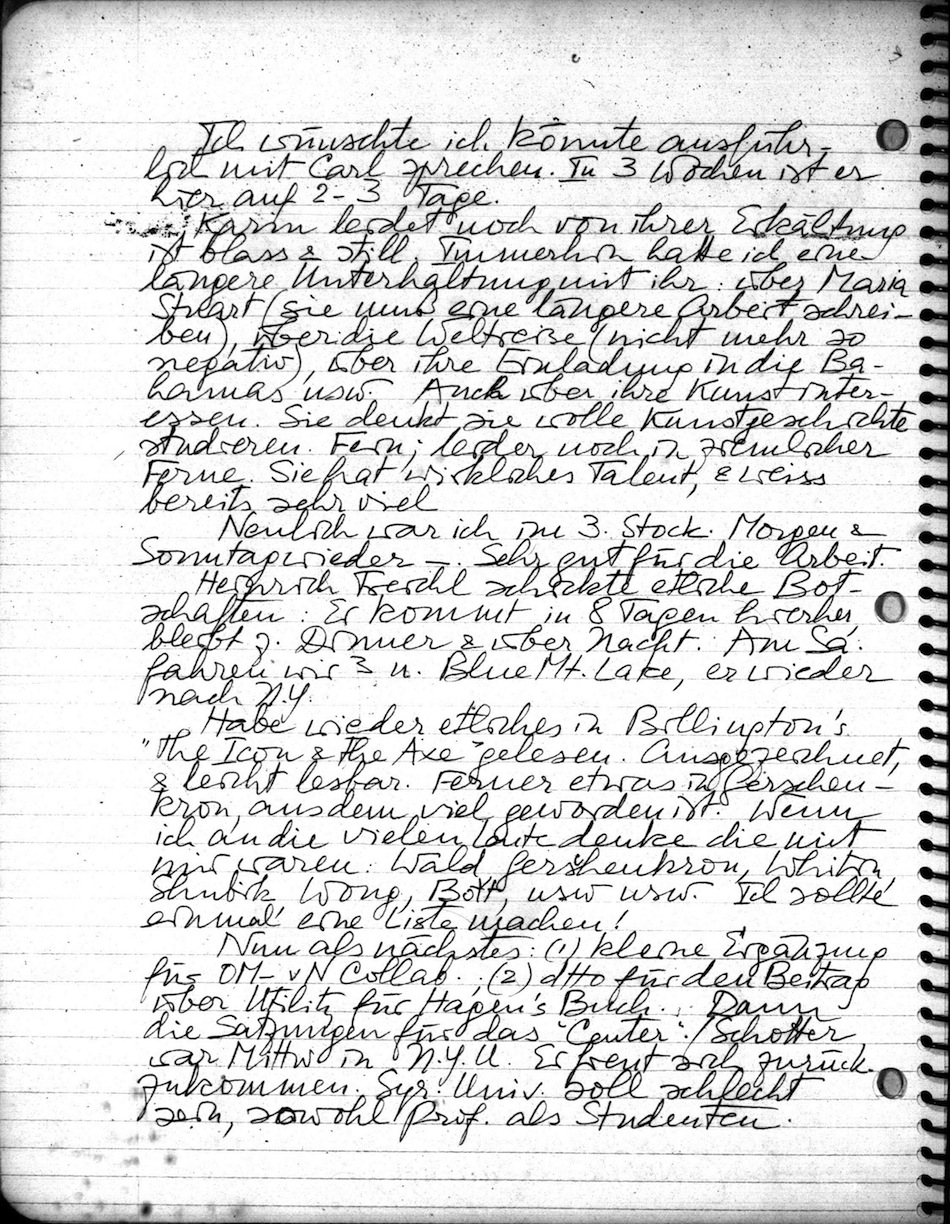 Ich wünschte ich könnte ausführ-
lich mit Carl sprechen. In 3 Wochen ist er
hier auf 2-3 Tage.
Karin leidet noch von ihrer Erkältung
ist blass & still. Immerhin hatte ich eine
längere Unterhaltung mit ihr: über Maria
Stuart (sie muss eine längere Arbeit schrei-
ben), über die Weltreise (nicht mehr so
negativ), über ihre Einladung in die Ba-
hamas usw. Auch über ihre Kunstinter-
essen. Sie denkt sie wolle Kunstgeschichte
studieren. Fein; leider noch in ziemlicher
Ferne. Sie hat wirkliches Talent, & weiss
bereits sehr viel
Neulich war ich im 3. Stock. Morgen &
Sonntag wieder –. Sehr gut für die Arbeit.
Heinrich Treichl schickte etliche Bot-
schaften: Er kommt in 8 Tagen hierher,
bleibt z. Dinner & über Nacht. Am Sa.
fahren wir 3 n. Blue Mt. Lake, er wieder
nach N.Y.
Habe wieder etliches in Billington's
"The Icon & the Axe" gelesen. Ausgezeichnet,
& leicht lesbar. Ferner etwas in Gerschen-
kron, aus dem viel geworden ist. Wenn
ich an die vielen Leute denke die mit
mir waren: Wald Gershenkron, Whitin,
Shubik Wong, Bott, usw usw. Ich sollte
einmal eine Liste machen!
Nun als nächstes: (1) kleine Ergänzung
für OM-vN Collab.. (2) dtto für den Beitrag
über Utility für Hagen's Buch.. Dann
die Satzungen für das "Center"./Schotter
war Mittw in N.Y.U. Er freut sich zurück-
zukommen. Syr. Univ. soll schlecht
sein, sowohl Prof. als Studenten.